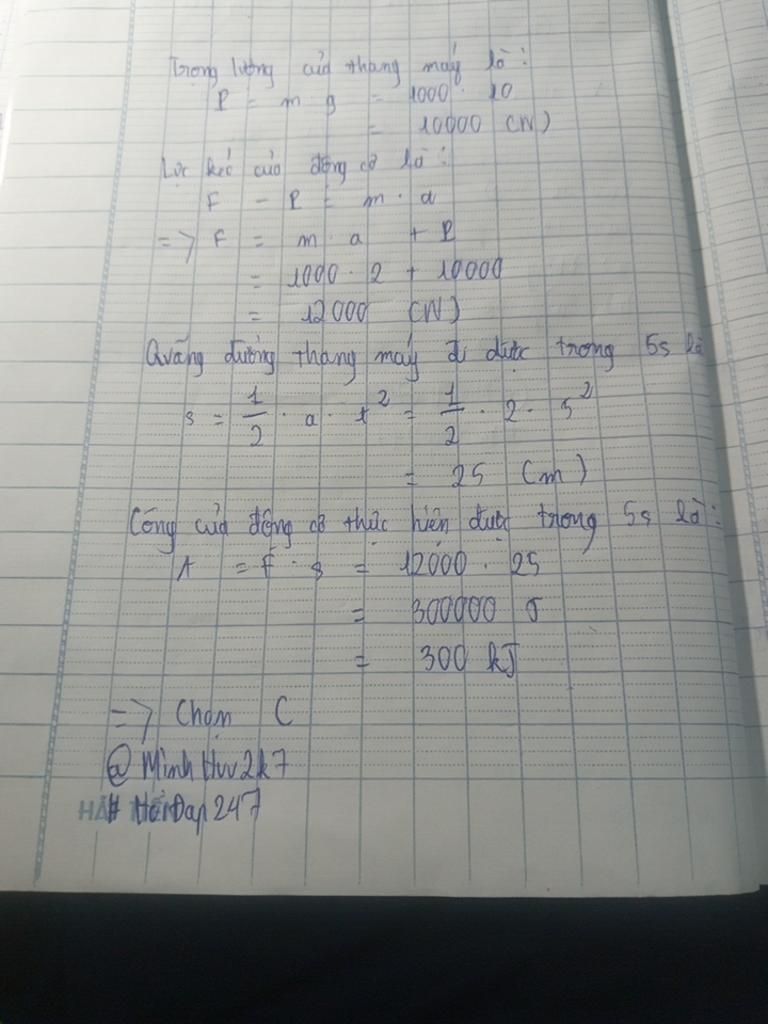 Trọng lượng của thang máy là:
P = m . g = 1000 . 10
= 10000 (N)
Lực kéo của động cơ là:
F - P = m . a
=> F = m . a + P
= 1000 . 2 + 10000
= 12000 (N)
Quãng đường thang máy đi được trong 5s là
s = 1/2 . a . t² = 1/2 . 2 . 5²
= 25 (m)
Công của động cơ thực hiện được trong 5s là:
A = F . s = 12000 . 25
= 300000 J
= 300 kJ
=> Chọn C
@MinhHuu2k7
# HỏiĐap247